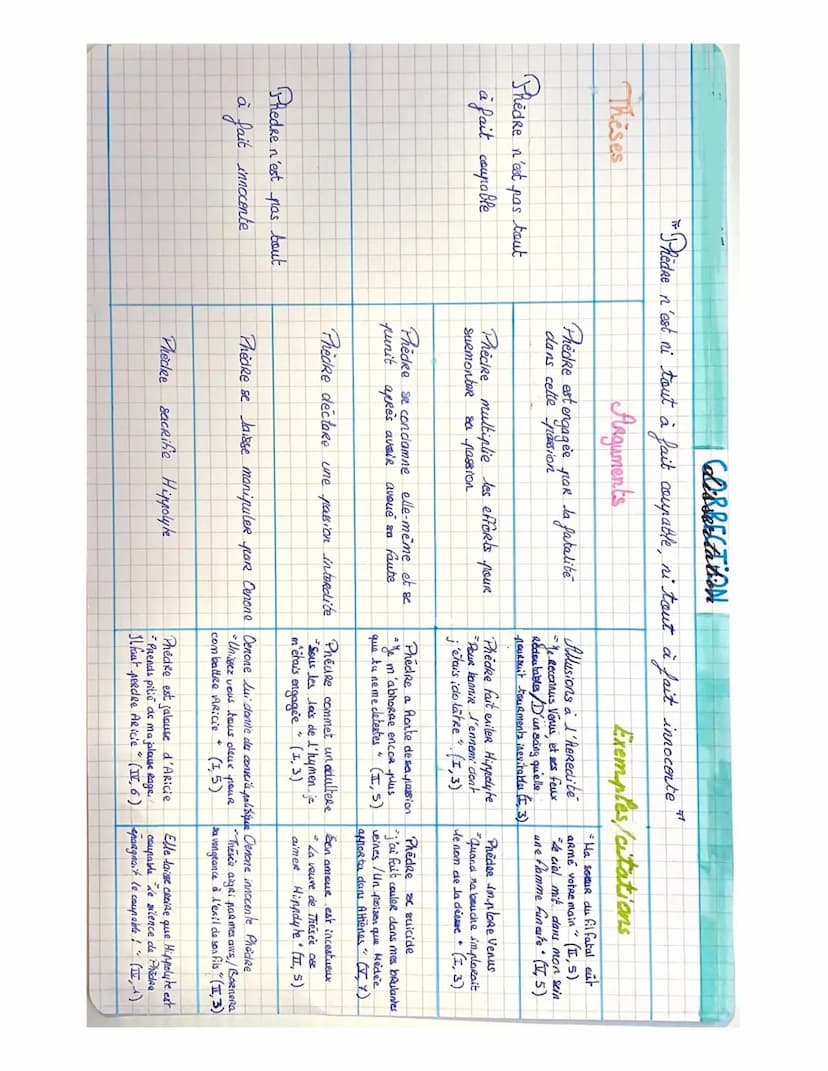 CORRECTION
dissertation
" Phèdre n'est ni tout à fait coupable, ni tout à fait innocente "
Thèses
Arguments
Exemples/citations
Phèdre n'est pas tout
à fait coupable
Phèdre est engagée par la fatalité
dans cette passion
Allusions à l'hérédité
"Je reconnus Vénus et ses feux
redoutables/D'un sang qu'elle
poursuit tourments inévitables (I, 3)
"Ma soeur du fil fatal eût
armé votre main" (II, 5)
"le ciel mit dans mon sein
une flamme funeste" (V, 5)
Phèdre multiplie les efforts pour
surmonter sa passion
Phèdre fait exiler Hippolyte
"Pour bannir l'ennemi dont
j'étais idolâtre" (I, 3)
Phèdre implore Vénus
"Quand ma bouche implorait
le nom de la déesse" (I, 3)
Phèdre se condamne elle-même et se
punit après avoir avoué sa faute
Phèdre a honte de sa passion
"Je m'abhorre encor plus
que tu ne me détestes" (II, 5)
Phèdre se suicide
"j'ai fait couler dans mes brûlantes
veines /Un poison que Médée
apporta dans Athènes" (V, 7)
Phèdre n'est pas tout
à fait innocente
Phèdre déclare une passion interdite
Phèdre commet un adultère
"Sous les lois de l'hymen je
m'étais engagée" (I, 3)
Son amour est incestueux
"La veuve de Thésée ose
aimer Hippolyte" (II, 5)
Phèdre se laisse manipuler par Oenone
Oenone lui donne du conseils politique
"Unissez vous tous deux pour
combattre Aricie" (I, 5)
Oenone innocente Phèdre
"Thésée aigri par mes avis,/Bornera
sa vengeance à l'exil de son fils" (III, 3)
Phèdre sacrifie Hippolyte
Phèdre est jalouse d'Aricie
"Prends pitié de ma jalouse rage.
Il faut perdre Aricie" (IV, 6)
Elle laisse croire que Hippolyte est
coupable "le silence de Phèdre
épargnait le coupable !" (IV, 1)